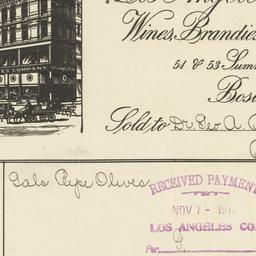 Los Angeles
Wines, Brandies
51 & 53 Sum
Bos
ES COMPANY
Sold to Dr. Geo. A.
Gals. Ripe Olives
RECEIVED PAYMENT
NOV 7 - 19
LOS ANGELES CO.
Per